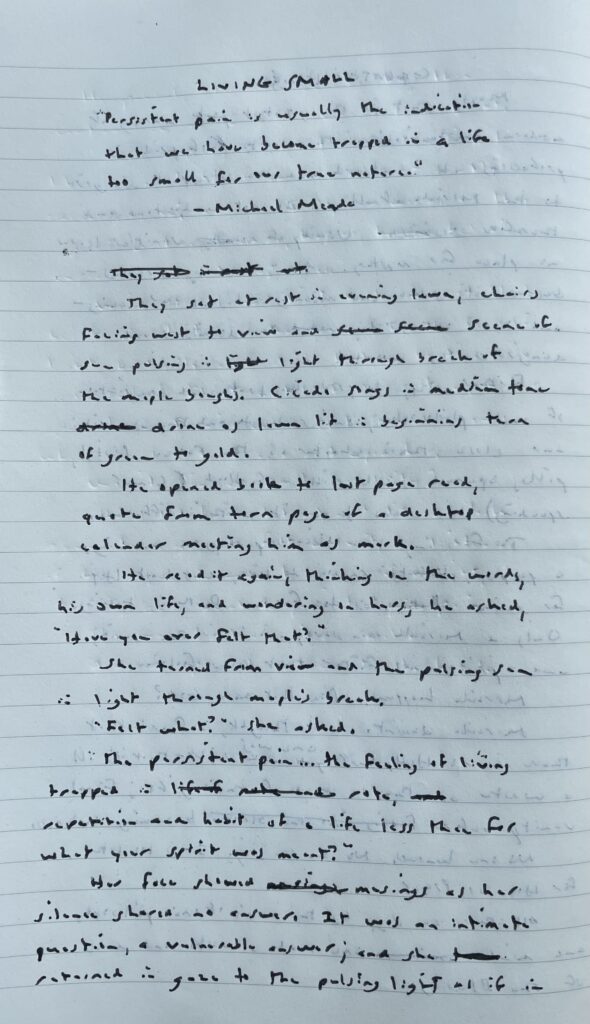 LIVING SMALL
"Persistent pain is usually the indication
that we have become trapped in a life
too small for our true nature."
- Michael Meade
They sat in rest at
They sat at rest in evening lawn, chairs
facing west to view and scene of
sun pulsing in light through break of
the maple boughs. Cicada songs in medium tone
drone as lawn lit in beginning turn
of green to gold.
He opened book to last page read,
quote from torn page of a desktop
calender meeting him as mark.
He read it again, thinking on the words,
his own life, and wondering on hers, he asked,
"Have you ever felt that?"
She turned from view and the pulsing sun
in light through maple's break.
"Felt what?" she asked.
"The persistent pain... the feeling of living
trapped in rote, and
repetition and habit of a life less than for
what your spirit was meant?"
Her face showed musings as her
silence shaped no answer. It was an intimate
question, a vulnerable answer; and she
returned in gaze to the pulsing light as if in